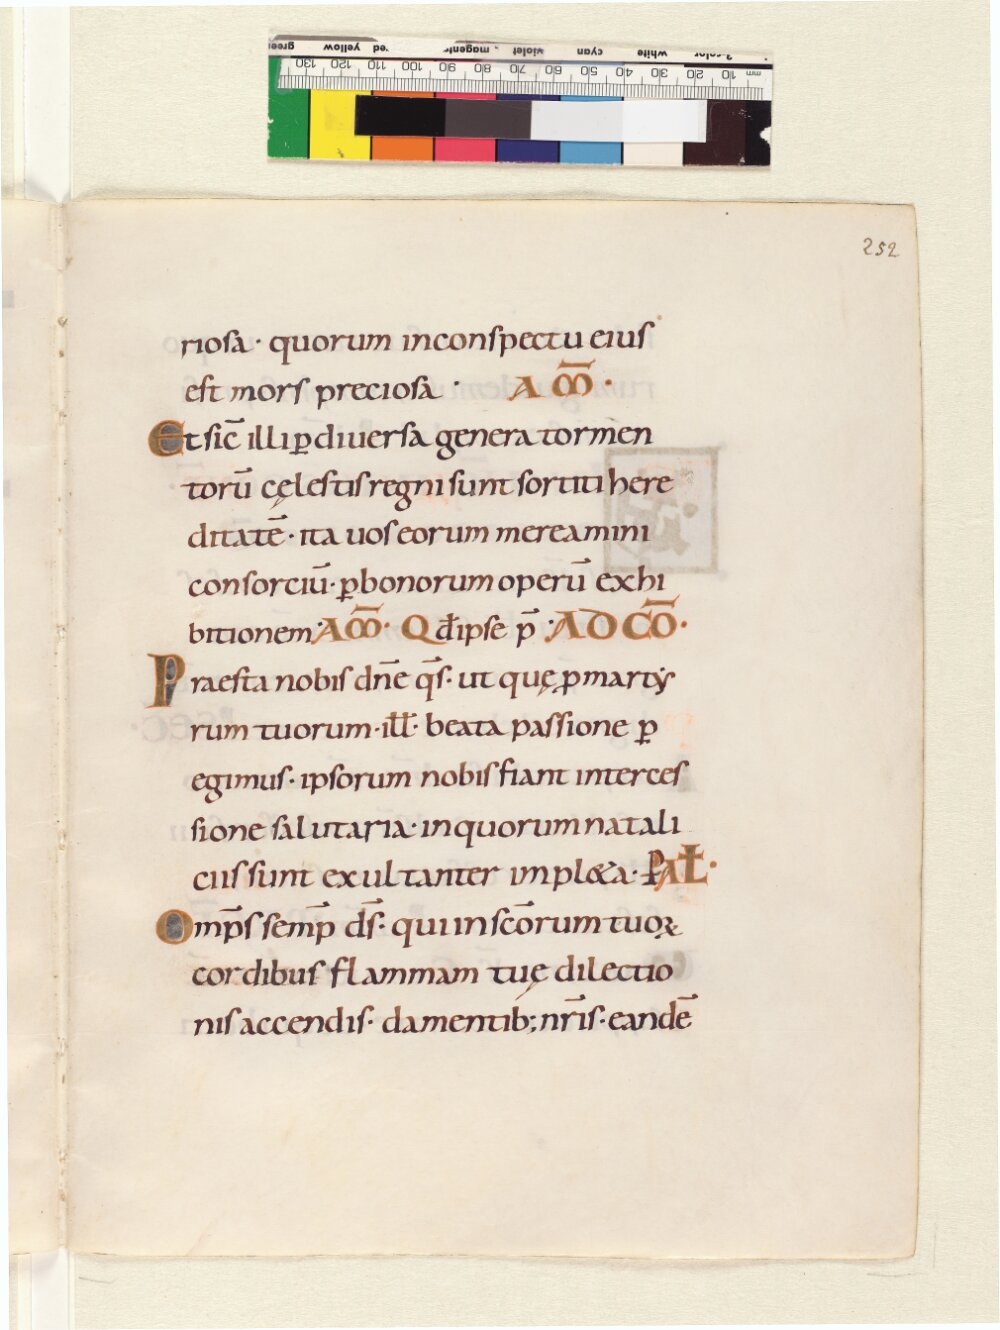 252
riosa · quorum in conspectu eius
est mors preciosa · AM̄ ·
Et sic̄ illi ꝑ diuersa genera tormen
torū cęlestis regni sunt sortiti here
ditatē · ita uos eorum mereamini
consorciū · ꝑ bonorum operū exhi
bitionem · AM̄ · Qđ ipse p̄ · AD CŌ ·
Praesta nobis dn̄e q̄s · ut quę ꝑ marty
rum tuorum · ill̄ · beata passione ꝑ
egimus · ipsorum nobis fiant interces
sione salutaria · in quorum natali
ciis sunt exultanter impl&a · P AL̄ ·
Omp̄s semp̄ ds̄ · qui in sc̄orum tuoꝝ
cordibus flammam tuę dilectio
nis accendis · da mentib; nr̄is · eandē